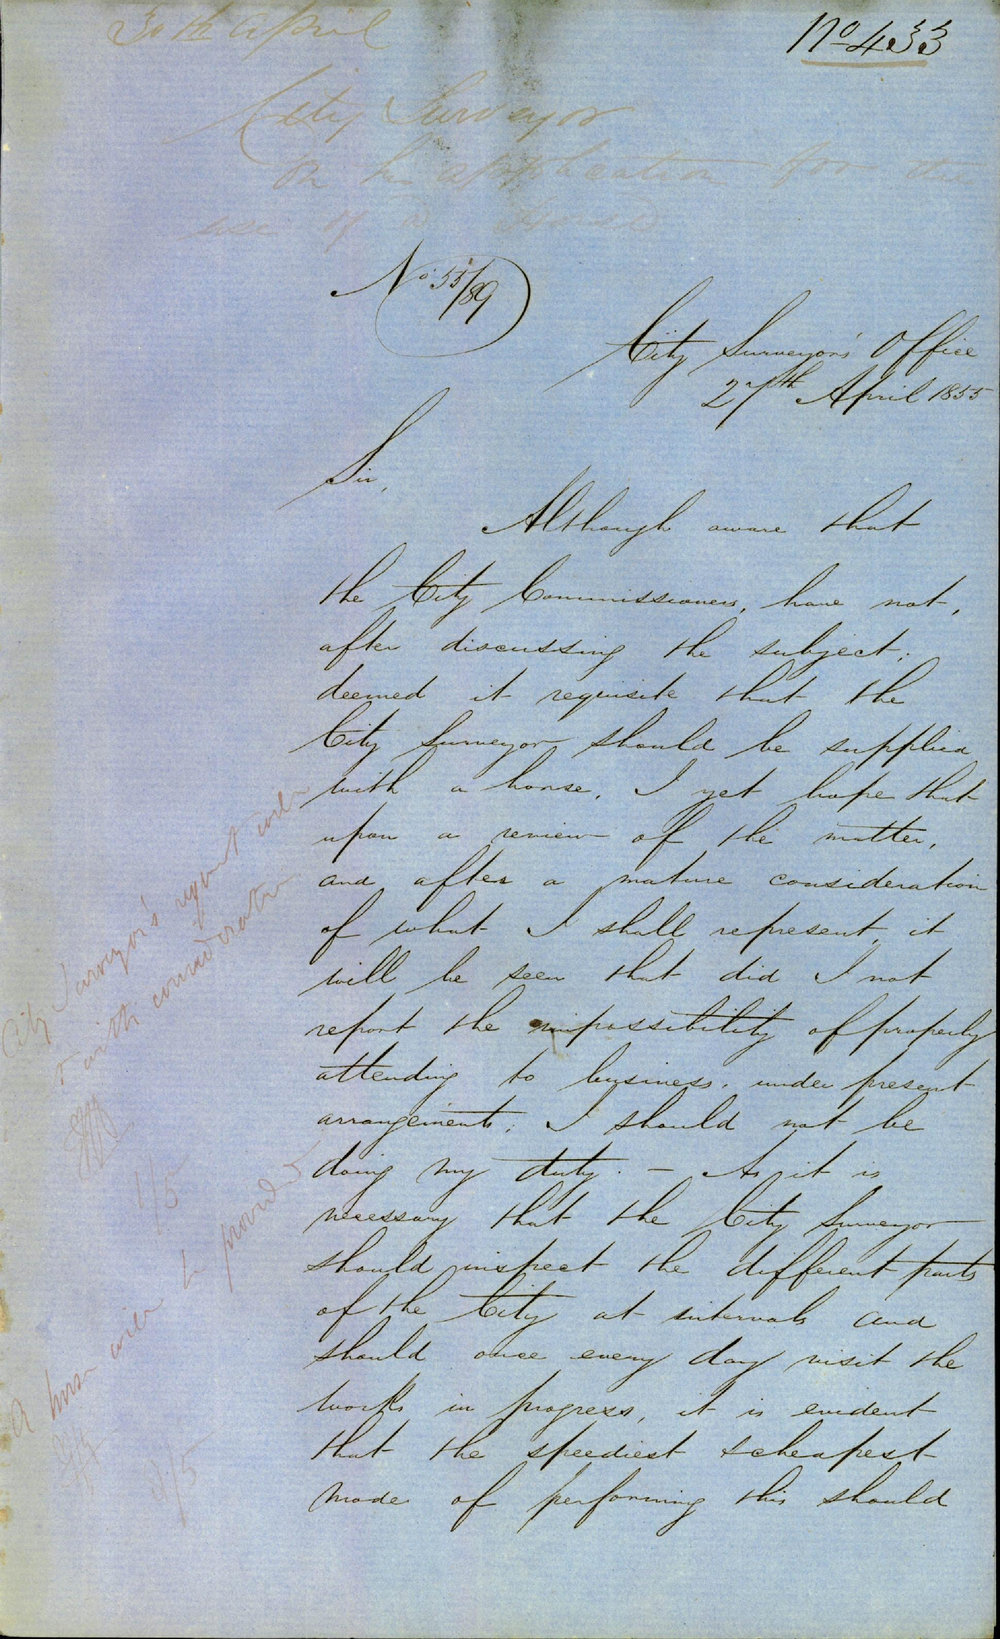 30th April
No 433
City Surveyor
On his application for the
use of a Horse
No 55/89
City Surveyor's Office
27th April 1855
Sir,
Although aware that
the City Commissioners, have not,
after discussing the subject;
deemed it requisite that the
City Surveyor should be supplied
with a horse, I yet hope that
upon a review of the matter,
and after a mature consideration
of what I shall represent, it
will be seen that did I not
report the impossibility of properly
attending to business, under present
arrangements; I should not be
doing my duty. — As it is
necessary that the City Surveyor
should inspect the different parts
of the City at intervals and
should once every day visit the
works in progress, it is evident
that the speediest & cheapest
mode of performing this should
City Surveyor's request
with consideration
1/5
A horse will be provided
/5